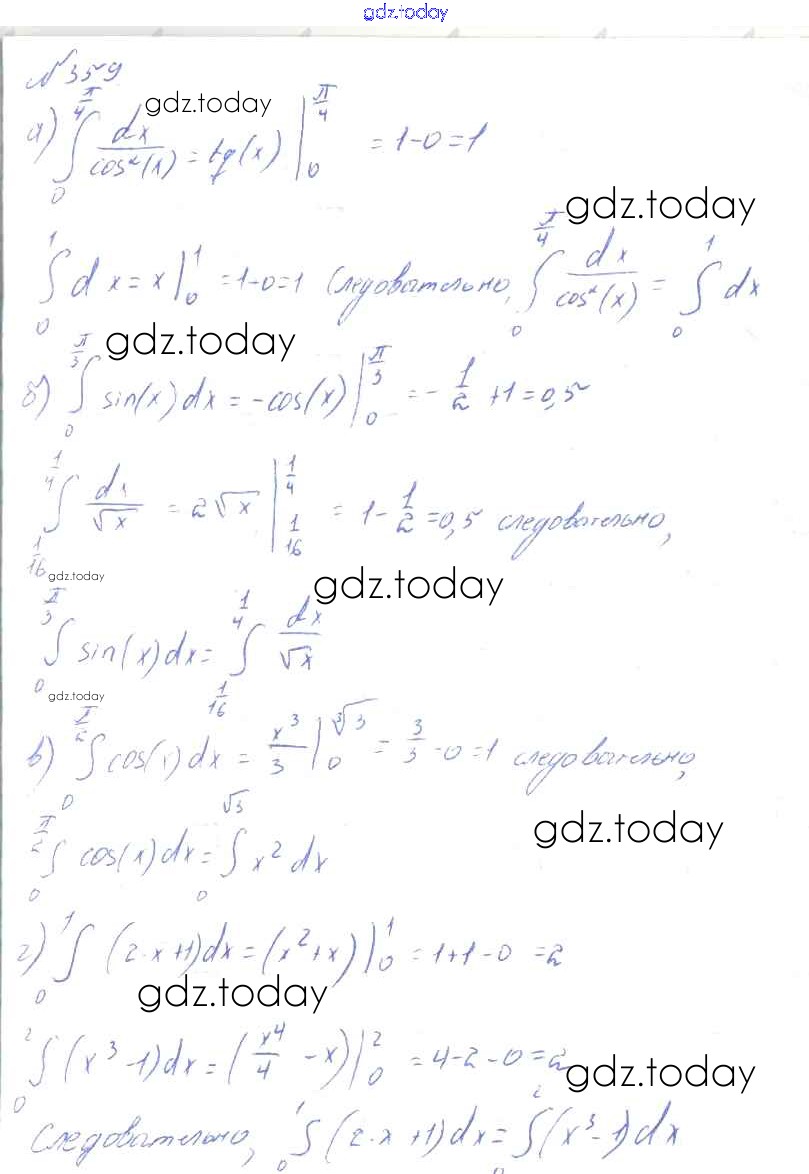 gdz.today
№359
а) ∫₀^{π/4} dx/cos²(x) = tg(x) |₀^{π/4} = 1-0=1
gdz.today
gdz.today
∫₀¹ dx = x|₀¹ = 1-0=1 Следовательно, ∫₀^{π/4} dx/cos²(x) = ∫₀¹ dx
gdz.today
б) ∫₀^{π/3} sin(x)dx = -cos(x)|₀^{π/3} = -1/2 +1 = 0,5
∫_{1/16}^{1/4} dx/√x = 2√x |_{1/16}^{1/4} = 1 - 1/2 = 0,5 следовательно,
gdz.today
gdz.today
∫₀^{π/3} sin(x)dx = ∫_{1/16}^{1/4} dx/√x
gdz.today
в) ∫₀^{π/2} cos(x)dx = x³/3 |₀^{∛3} = 3/3 - 0 = 1 следовательно,
gdz.today
∫₀^{π/2} cos(x)dx = ∫₀^{√3} x² dx
г) ∫₀¹ (2·x+1)dx = (x²+x)|₀¹ = 1+1-0 = 2
gdz.today
∫₀² (x³-1)dx = (x⁴/4 - x)|₀² = 4-2-0=2
gdz.today
Следовательно, ∫₀¹ (2·x+1)dx = ∫₀² (x³-1)dx